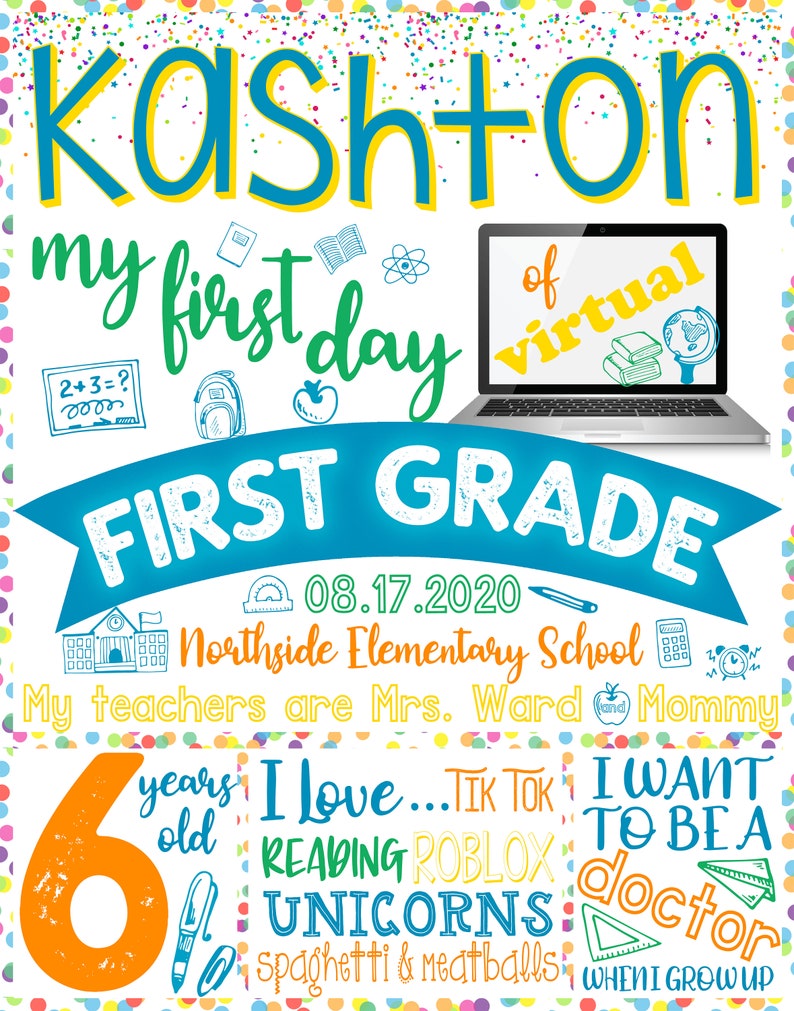 Kashton
my first day
of
virtual
2+3=?
FIRST GRADE
08.17.2020
Northside Elementary School
My teachers are Mrs. Ward and Mommy
6 years old
I Love...TIK TOK
READING ROBLOX
UNICORNS
spaghetti & Meatballs
I WANT
TO BE A
doctor
WHEN I GROW UP